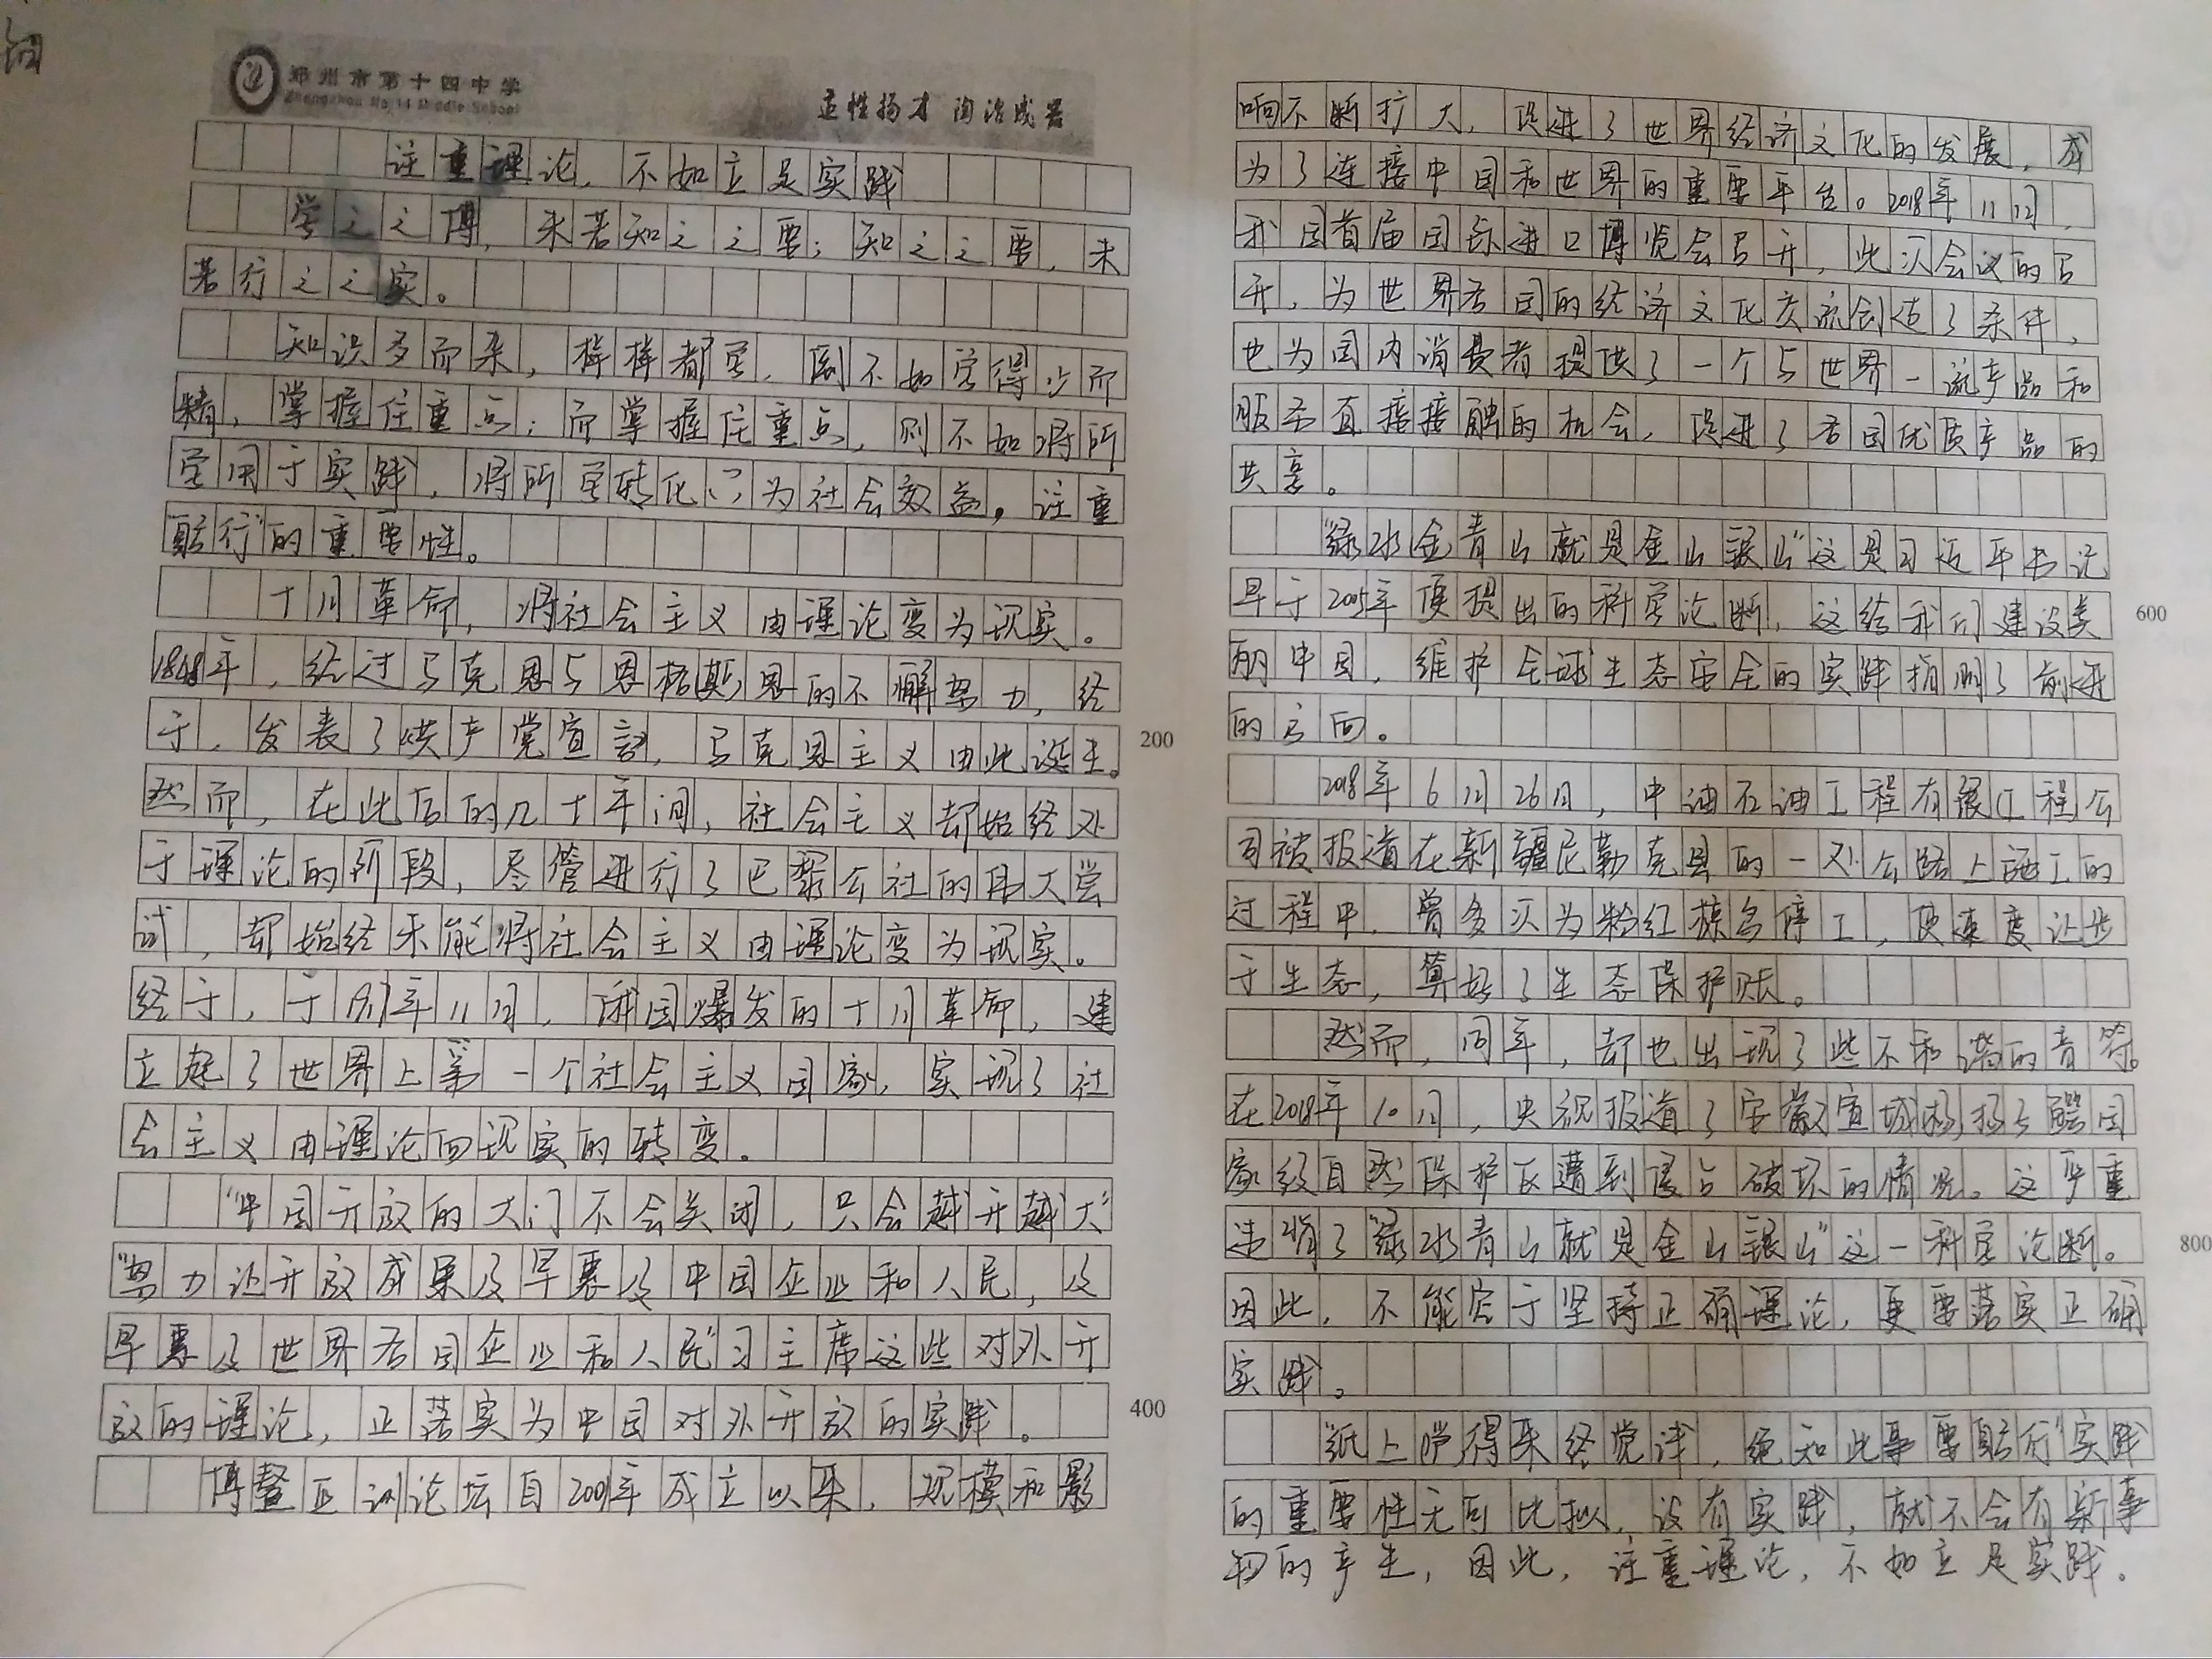 郑州市第十四中学
Zhengzhou No.14 Middle School
适性扬才 陶冶成器
注重理论，不如立足实践
学之之博，未若知之之要；知之之要，未
若行之之实。
知识多而杂，样样都学，倒不如学得少而
精，掌握住重点；而掌握住重点，则不如将所
学用于实践，将所学转化为社会效益。注重
“躬行”的重要性。
十月革命，将社会主义由理论变为现实。
1848年，经过马克思与恩格斯的不懈努力，经
于，发表了共产党宣言，马克思主义由此诞生。
然而，在此后的几十年间，社会主义却始经处
于理论的阶段，尽管进行了巴黎公社的伟大尝
试，却始经未能将社会主义由理论变为现实。
经于，于1917年11月，俄国爆发的十月革命，建
立起了世界上第一个社会主义国家，实现了社
会主义由理论向现实的转变。
“中国开放的大门不会关闭，只会越开越大”
“努力让开放成果及早惠及中国企业和人民，及
早惠及世界各国企业和人民”习主席这些对外开
放的理论，正落实为中国对外开放的实践。
200
400
博鳌亚洲论坛自2001年成立以来，规模和影
响不断扩大，促进了世界经济文化的发展，成
为了连接中国和世界的重要平台。2018年11月，
我国首届国际进口博览会召开，此次会议的召
开，为世界各国的经济文化交流创造了条件，
也为国内消费者提供了一个与世界一流产品和
服务直接接触的机会，促进了各国优质产品的
共享。
“绿水青山就是金山银山”这是习近平书记
早于2005年便提出的科学论断，这给我们建设美
丽中国，维护全球生态安全的实践指明了前进
的方向。
2018年6月26日，中油石油工程有限工程公
司被报道在新疆尼勒克县的一处公路上施工的
过程中，曾多次为粉红椋鸟停工，使速度让步
于生态，算好了生态保护账。
然而，同年，却也出现了些不和谐的音符。
在2018年10月，央视报道了安徽宣城扬子鳄国
家级自然保护区遭到侵占破坏的情况。这严重
违背了“绿水青山就是金山银山”这一科学论断。
因此，不能安于坚持正确理论，更要落实正确
实践。
“纸上得来终觉浅，绝知此事要躬行”实践
的重要性无可比拟，没有实践，就不会有新事
物的产生，因此，注重理论，不如立足实践。
600
800